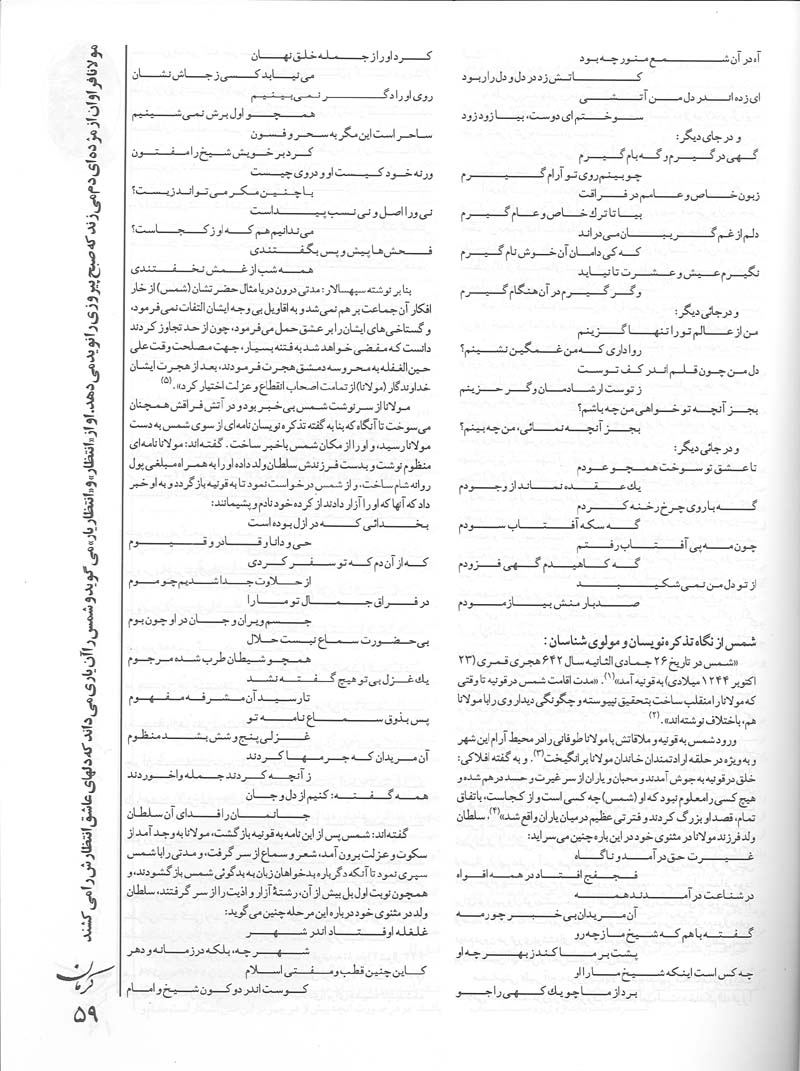 آه در آن شمع منور چه بود
کاتش زد در دل و دل را ربود
ای زده اندر دل من آتشی
سوختم ای دوست، بیا زود زود
و در جای دیگر:
گهی در گیرم و گه بام گیرم
چو بینم روی تو آرام گیرم
زبون خاص و عامم در فراقت
بیا تا ترک خاص و عام گیرم
دلم از غم گریبان می‌دراند
که کی دامان آن خوش نام گیرم
نگیرم عیش و عشرت تا نیاید
وگر گیرم در آن هنگام گیرم
و در جائی دیگر:
من از عالم تو را تنها گزینم
روا داری که من غمگین نشینم؟
دل من چون قلم اندر کف توست
ز توست ار شادمان وگر حزینم
بجز آنچه تو خواهی من چه باشم؟
بجز آنچه نمائی، من چه بینم؟
و در جائی دیگر:
تا عشق تو سوخت همچو عودم
یك عقده نماند از وجودم
گه باروی چرخ رخنه کردم
گه سکه آفتاب سودم
چون مه پی آفتاب رفتم
گه کاهیدم گهی فزودم
از تو دل من نمی شکیبد
صد بار منش بیازمودم
شمس از نگاه تذکره نویسان و مولوی شناسان:
«شمس در تاریخ ۲۶ جمادی الثانیه سال ۶۴۲ هجری قمری (۲۳
اکتوبر ۱۲۴۴ میلادی) به قونیه آمد»(۱). «مدت اقامت شمس در قونیه تا وقتی
که مولانا را منقلب ساخت بتحقیق نپیوسته و چگونگی دیدار وی را با مولانا
هم، با ختلاف نوشته‌اند».(۲)
ورود شمس به قونیه و ملاقاتش با مولانا طوفانی را در محیط آرام این شهر
و به ویژه در حلقه ارادتمندان خاندان مولانا برانگیخت(۳). و به گفته افلاکی:
خلق در قونیه به جوش آمدند و محبان و یاران از سر غیرت و حسد در هم شده و
هیچ کسی را معلوم نبود که او (شمس) چه کسی است و از کجاست، باتفاق
تمام، قصد او بزرگ کردند و فترتی عظیم در میان یاران واقع شد»(۴). سلطان
ولد فرزند مولانا در مثنوی خود در این باره چنین می‌سراید:
غیرت حق در آمد و ناگاه
فجفج افتاد در همه افواه
در شناعت در آمدند همه
آن مریدان بی خبر چو رمه
گفته با هم که شیخ ما ز چه رو
پشت بر ما کند ز بهر چه او
چه کس است اینکه شیخ ما را او
برد از ما چو یك کهی را جو
کرد او را ز جمله خلق نهان
می نیابد کسی ز جاش نشان
روی او را دگر نمی بینیم
همچو اول برش نمی شینیم
ساحر است این مگر به سحر و فسون
کرد بر خویش شیخ را مفتون
ورنه خود کیست او و در وی چیست
با چنین مکر می تواند زیست؟
نی ورا اصل و نی نسب پیداست
می ندانیم هم که او ز کجاست؟
فحش‌ها پیش و پس بگفتندی
همه شب از غمش نخفتندی
بنا بر نوشته سپهسالار: مدتی درون دریا مثال حضرتشان (شمس) از خار
افکار آن جماعت بر هم نمی شد و به اقاویل بی وجه ایشان التفات نمی فرمود،
و گستاخی‌های ایشان را بر عشق حمل می فرمود، چون از حد تجاوز کردند
دانست که مفضی خواهد شد به فتنه بسیار، جهت مصلحت وقت علی
حین الغفله به محروسه دمشق هجرت فرمودند، بعد از هجرت ایشان
خداوندگار (مولانا) از تمامت اصحاب انقطاع و عزلت اختیار کرد».(۵)
مولانا از سرنوشت شمس بی خبر بود و در آتش فراقش همچنان
می‌سوخت تا آنگاه که بنا به گفته تذکره نویسان نامه‌ای از سوی شمس به دست
مولانا رسید، و او را از مکان شمس باخبر ساخت. گفته‌اند: مولانا نامه‌ای
منظوم نوشت و بدست فرزندش سلطان ولد داده او را به همراه مبلغی پول
روانه شام ساخت، و از شمس درخواست نمود تا به قونیه بازگردد و به او خبر
داد که آنها که او را آزار دادند از کرده خود نادم و پشیمانند:
بخدائی که در ازل بوده است
حی و دانا و قادر و قیوم
که از آن دم که تو سفر کردی
از حلاوت جدا شدیم چو موم
در فراق جمال تو ما را
جسم ویران و جان در او چون بوم
بی حضورت سماع نیست حلال
همچو شیطان طرب شده مرجوم
یك غزل بی تو هیچ گفته نشد
تا رسید آن مشرفه مفهوم
پس بذوق سماع نامه تو
غزلی پنج و شش بشد منظوم
آن مریدان که جرمها کردند
ز آنچه کردند جمله واخوردند
همه گفته: کنیم از دل و جان
جانمان را فدای آن سلطان
گفته‌اند: شمس پس از این نامه به قونیه بازگشت، مولانا به وجد آمد از
سکوت و عزلت برون آمد، شعر و سماع از سر گرفت، و مدتی را با شمس
سپری نمود تا آنکه دگرباره بدخواهان زبان به بدگوئی شمس بازگشودند، و
همچون نوبت اول بل بیش از آن، رشتهٔ آزار و اذیت را از سر گرفتند، سلطان
ولد در مثنوی خود درباره این مرحله چنین می گوید:
غلغله اوفتاد اندر شهر
شهر چه، بلکه در زمانه و دهر
کاین چنین قطب و مفتی اسلام
کوست اندر دو کون شیخ و امام
مولانا فراوان از مژده‌ای دم می زند که صبح پیروزی را نوید می دهد. او از «انتظار» و «انتظار یار» می گوید و شمس را آن یاری می داند که دلهای عاشق انتظارش را می کشند
کرمان
۵۹